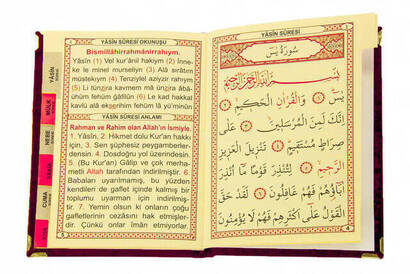 YÂSÎN SÛRESİ OKUNUŞU
Bismillâhirrahmânirrahıym.
Yâsîn (1) Vel kur'ânil hakiym (2) İnne-
ke le minel murseliyn (3) Alâ sırâtım
müstekıym (4) Tenziylel aziyzir rahıym
(5) Li tünzira kavmem mâ ünzira âbâ-
ühüm fehüm ğâfilûn (6) Le kad hakkal
kavlü alâ ekserihim fehüm lâ yü'minûn
YÂSÎN SÛRESİ ANLAMI
Rahman ve Rahim olan Allah'ın İsmiyle.
1. Yâsîn, 2. Hikmet dolu Kur'an hakkı
için, 3. Sen şüphesiz peygamberler-
densin. 4. Dosdoğru yol üzerindesin.
5. (Bu Kur'an) Gâlip ve çok merha-
metli Allah tarafından indirilmiştir. 6.
Babaları uyarılmamış, bu yüzden
kendileri de gaflet içinde kalmış bir
toplumu uyarman için indirilmiş-
tir. 7. Yemin olsun ki onların çoğu
gafletlerinin cezâsını hak etmişler-
dir. Çünkü onlar îmân etmiyorlar.
YÂSÎN
MÜLK
NEBE
CUMA
YÂSÎN SÛRESİ
سُورَةُ يٰسٓ
بِسْمِ اللّٰهِ الرَّحْمٰنِ الرَّحِيمِ
يٰسٓ ﴿١﴾ وَالْقُرْاٰنِ الْحَكِيمِ ﴿٢﴾
اِنَّكَ لَمِنَ الْمُرْسَلِينَ ﴿٣﴾ عَلٰى
صِرَاطٍ مُسْتَقِيمٍ ﴿٤﴾ تَنْزِيلَ الْعَزِيزِ
الرَّحِيمِ ﴿٥﴾ لِتُنْذِرَ قَوْمًا مَٓا اُنْذِرَ
اٰبَٓاؤُ۬هُمْ فَهُمْ غَافِلُونَ ﴿٦﴾ لَقَدْ حَقَّ
الْقَوْلُ عَلٰٓى اَكْثَرِهِمْ فَهُمْ لَا يُؤْمِنُونَ